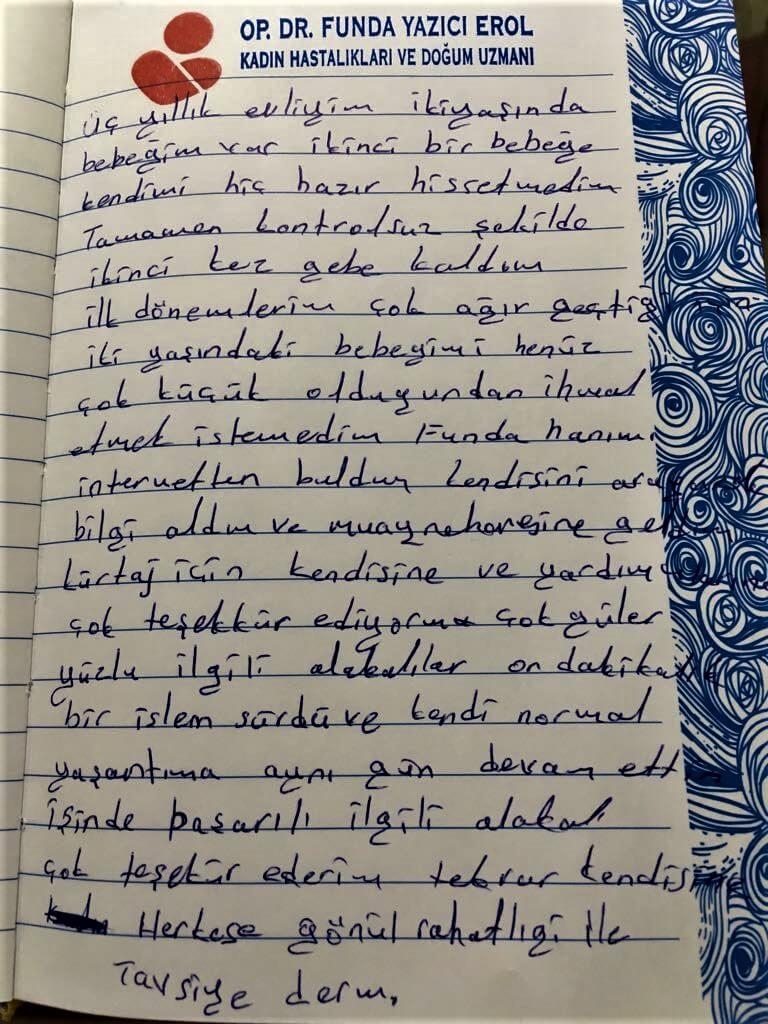 OP. DR. FUNDA YAZICI EROL
KADIN HASTALIKLARI VE DOĞUM UZMANI
üç yıllık evliyim ikiyaşında
bebeğim var ikinci bir bebeğe
kendimi hiç hazır hissetmedim
Tamamen kontrolsuz şekilde
ikinci kez gebe kaldım
ilk dönemlerim çok ağır geçtiği
iki yaşındaki bebeğimi henüz
çok küçük oldugundan ihmal
etmek istemedim Funda hanımı
internetten buldum kendisini
bilgi aldım ve muaynehanesine
kürtaj için kendisine ve yardım
çok teşekkür ediyorum çok güler
yüzlu ilgili alakalılar on dakikalık
bir islem sürdü ve kendi normal
yaşantıma aynı gün devam ettim
işinde başarılı ilgili alakalı
çok teşekür ederim tekrar
Herkese gönül rahatlıgi ile
Tavsiye derım.